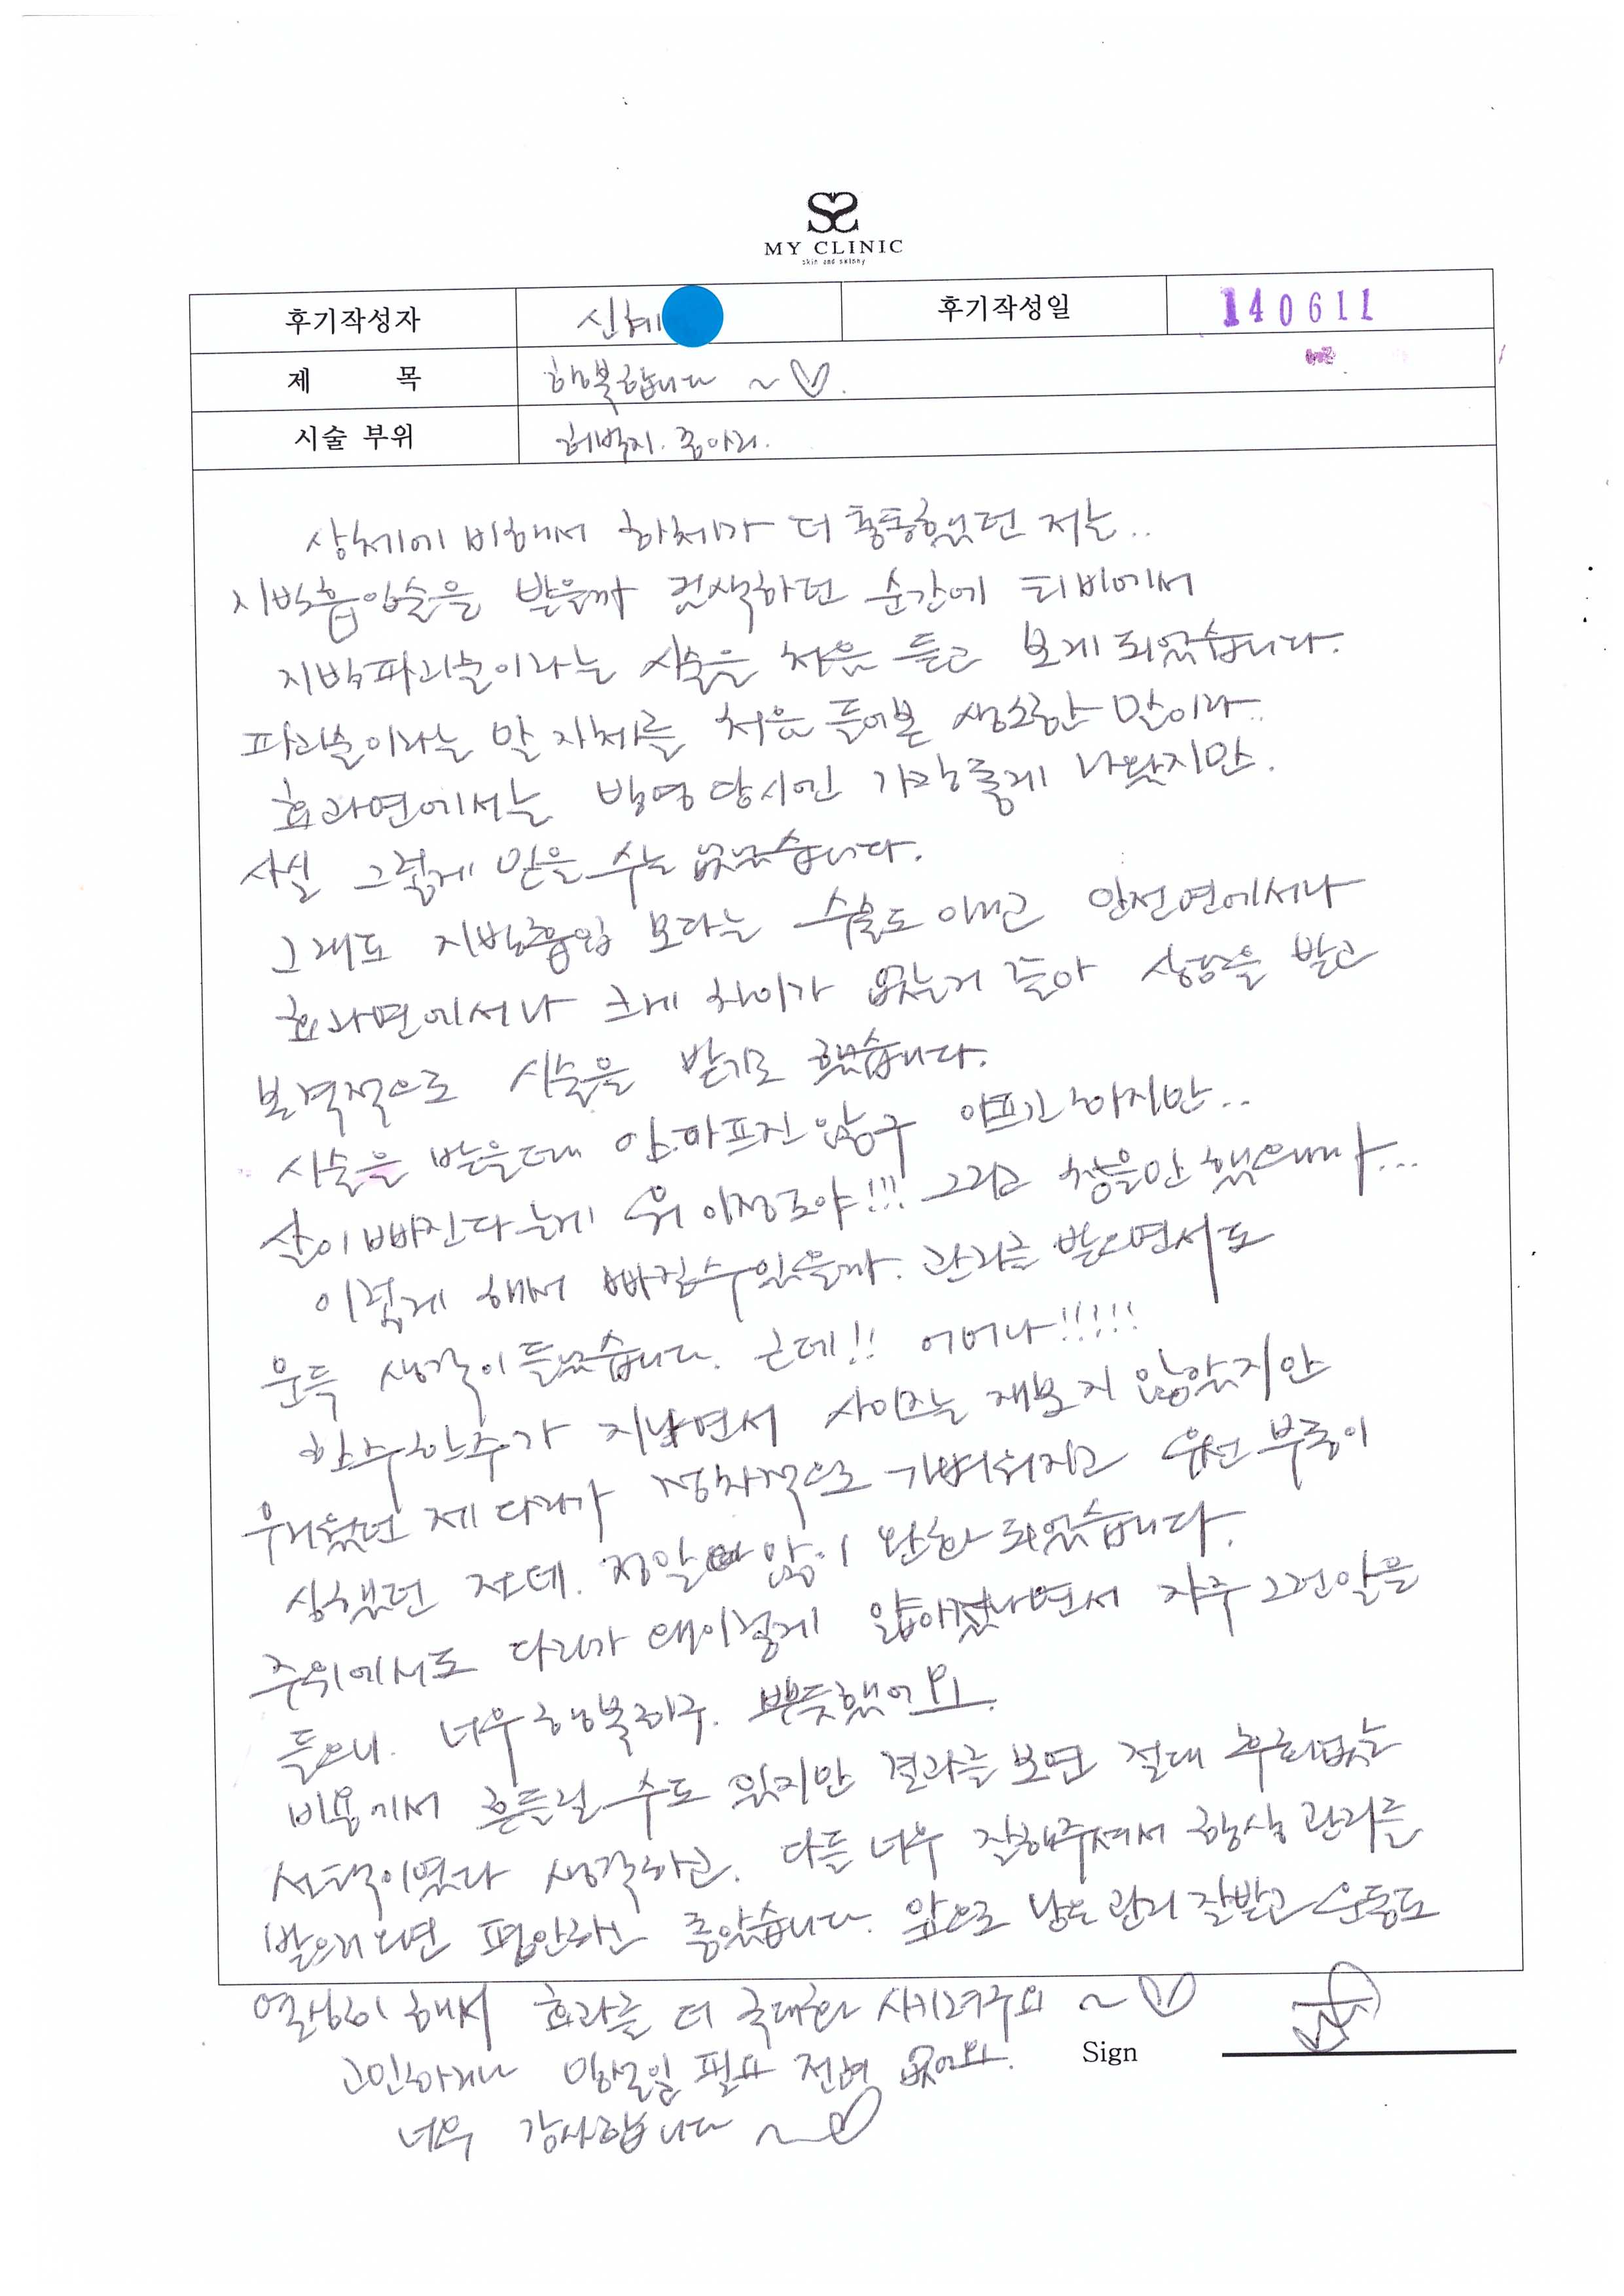 MY CLINIC
skin and skinny
후기작성자 신혜 후기작성일 140611
제 목 행복합니다 ~♡.
시술 부위 허벅지. 종아리.
상체에 비해서 하체가 더 통통했던 저는..
지방흡입술을 받을까 검색하던 순간에 티비에서
지방파괴술이라는 시술을 처음 듣고 보게 되었습니다.
파괴술이라는 말 자체를 처음 들어본 생소한 말이라..
효과면에서는 방영 당시엔 가장 좋게 나왔지만.
사실 그렇게 믿을 수는 없었습니다.
그래도 지방흡입 보다는 수술도 아니고 안전면에서나
효과면에서나 크게 차이가 없는거 같아 상담을 받고
본격적으로 시술을 받기로 했습니다.
시술을 받을때 안.아프진 않구 아프긴 하지만..
살이 빠진다는게 뭐 이정도야!!! 그리고 참을만 했으니까...
이렇게 해서 빠질수있을까. 관리를 받으면서도
문득 생각이 들었습니다. 근데!! 어머나!!!!!
한주한주가 지나면서 사이즈는 재보지 않았지만
무거웠던 제 다리가 점차적으로 가벼워지고 우선 부종이
심했던 저인데. 정말 많이 완화 되었습니다.
주위에서도 다리가 왜이렇게 얇아졌냐면서 자주 그런말을
들으니. 너무 행복하구. 뿌듯했어요.
비용에서 흔들릴 수도 있지만 결과를 보면 절대 후회없는
선택이였다 생각하고. 다들 너무 잘해주셔서 항상 관리를
받으러오면 편안하고 좋았습니다. 앞으로 남은 관리 잘받고 운동도
열심히 해서 효과를 더 극대화 시키려구요 ~♡
Sign
고민하거나 망설일 필요 전혀 없어요.
너무 감사합니다 ~♡